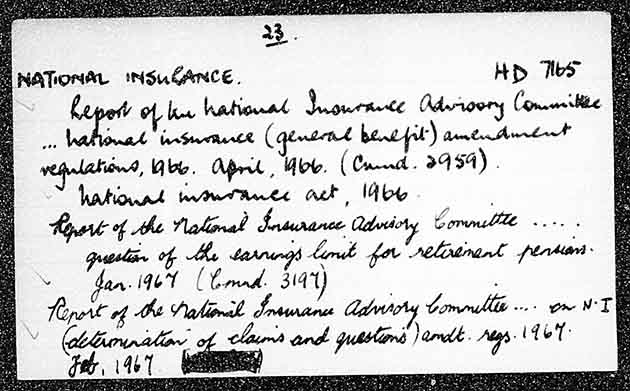 23.
NATIONAL INSURANCE. HD 7165
Report of the National Insurance Advisory Committee
... national insurance (general benefit) amendment
regulations, 1966. April, 1966. (Cmnd. 2959).
National insurance act, 1966
Report of the National Insurance Advisory Committee .....
question of the earnings limit for retirement pensions.
Jan. 1967 (Cmnd. 3197)
Report of the National Insurance Advisory Committee .... on N.I
(determination of claims and questions) amdt. regs. 1967.
Feb, 1967